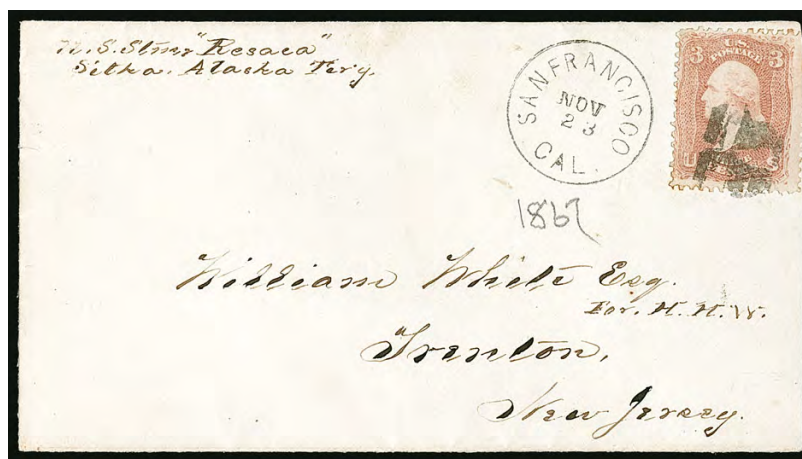 U.S. Stmr "Resaca"
Sitka. Alaska Ter'y.
SAN FRANCISCO
NOV
23
CAL.
3 U.S. 3
POSTAGE
U S
1867
William White Esq.
For. H. H. W.
Trenton,
New Jersey.